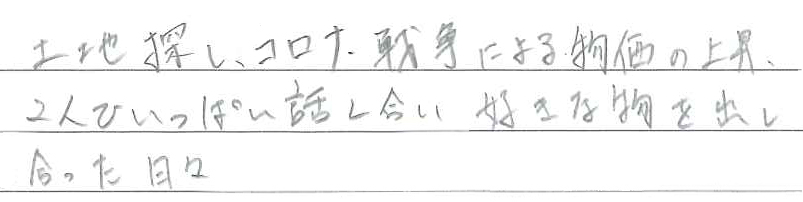 土地探し、コロナ、戦争による物価の上昇、
2人でいっぱい話し合い 好きな物を出し
合った日々